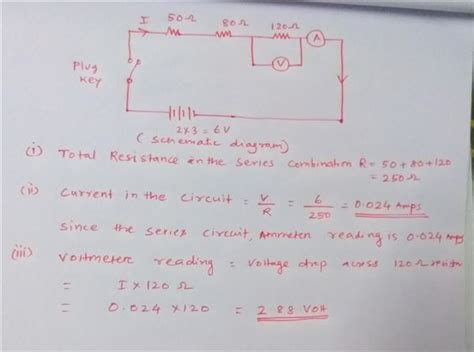 I 50Ω 80Ω 120Ω A
V
Plug
Key
2x3 = 6V
(Schematic diagram)
(i) Total Resistance in the Series Combination R = 50 + 80 + 120
= 250 Ω
(ii) Current in the Circuit = V/R = 6/250 = 0.024 Amps
Since the Series Circuit, Ammeter reading is 0.024 Amps
(iii) Voltmeter reading = Voltage drop across 120 Ω resistor
= I × 120 Ω
= 0.024 × 120 = 2.88 Volt